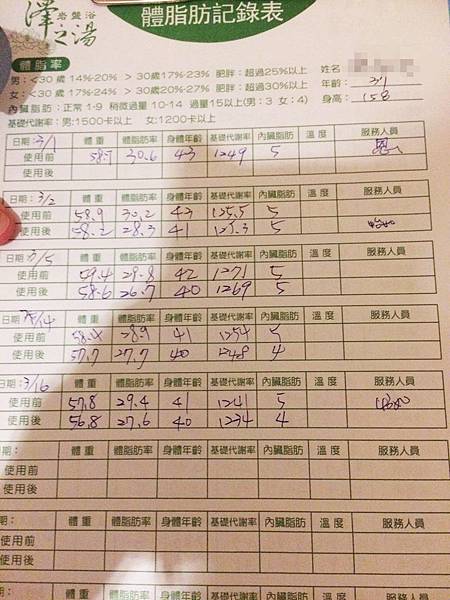 澤之湯 岩盤浴
體脂肪記錄表
體脂肪率
男:<30歲14%-20% >30歲17%-23% 肥胖:超過25%以上
女:<30歲17%-24% >30歲20%-27% 肥胖:超過30%以上
內臟脂肪:正常1-9 稍微過量10-14 過量15以上(男:3 女:4)
基礎代謝率:男:1500卡以上 女:1200卡以上
姓名
年齡: 31
身高: 158
日期:3/1 體重 體脂肪率 身體年齡 基礎代謝率 內臟脂肪 溫度 服務人員
使用前 58.7 30.6 43 1249 5
日期:3/2 體重 體脂肪率 身體年齡 基礎代謝率 內臟脂肪 溫度 服務人員
使用前 58.9 30.2 43 125.5 5
使用後 58.2 28.3 41 125.3 5
日期:3/5 體重 體脂肪率 身體年齡 基礎代謝率 內臟脂肪 溫度 服務人員
使用前 59.4 29.8 42 1271 5
使用後 58.6 26.7 40 1269 5
日期: /14 體重 體脂肪率 身體年齡 基礎代謝率 內臟脂肪 溫度 服務人員
使用前 58.4 28.9 41 1254 5
使用後 57.7 27.7 40 1248 4
日期:3/16 體重 體脂肪率 身體年齡 基礎代謝率 內臟脂肪 溫度 服務人員
使用前 57.8 29.4 41 1241 5
使用後 56.8 27.6 40 1234 4
期: 體重 體脂肪率 身體年齡 基礎代謝率 內臟脂肪 溫度 服務人員
使用前
使用後
期: 體重 體脂肪率 身體年齡 基礎代謝率 內臟脂肪 溫度 服務人員
使用前
使用後
期: 體重 體脂肪率 身體年齡 基礎代謝率 內臟脂肪 溫度 服務人員